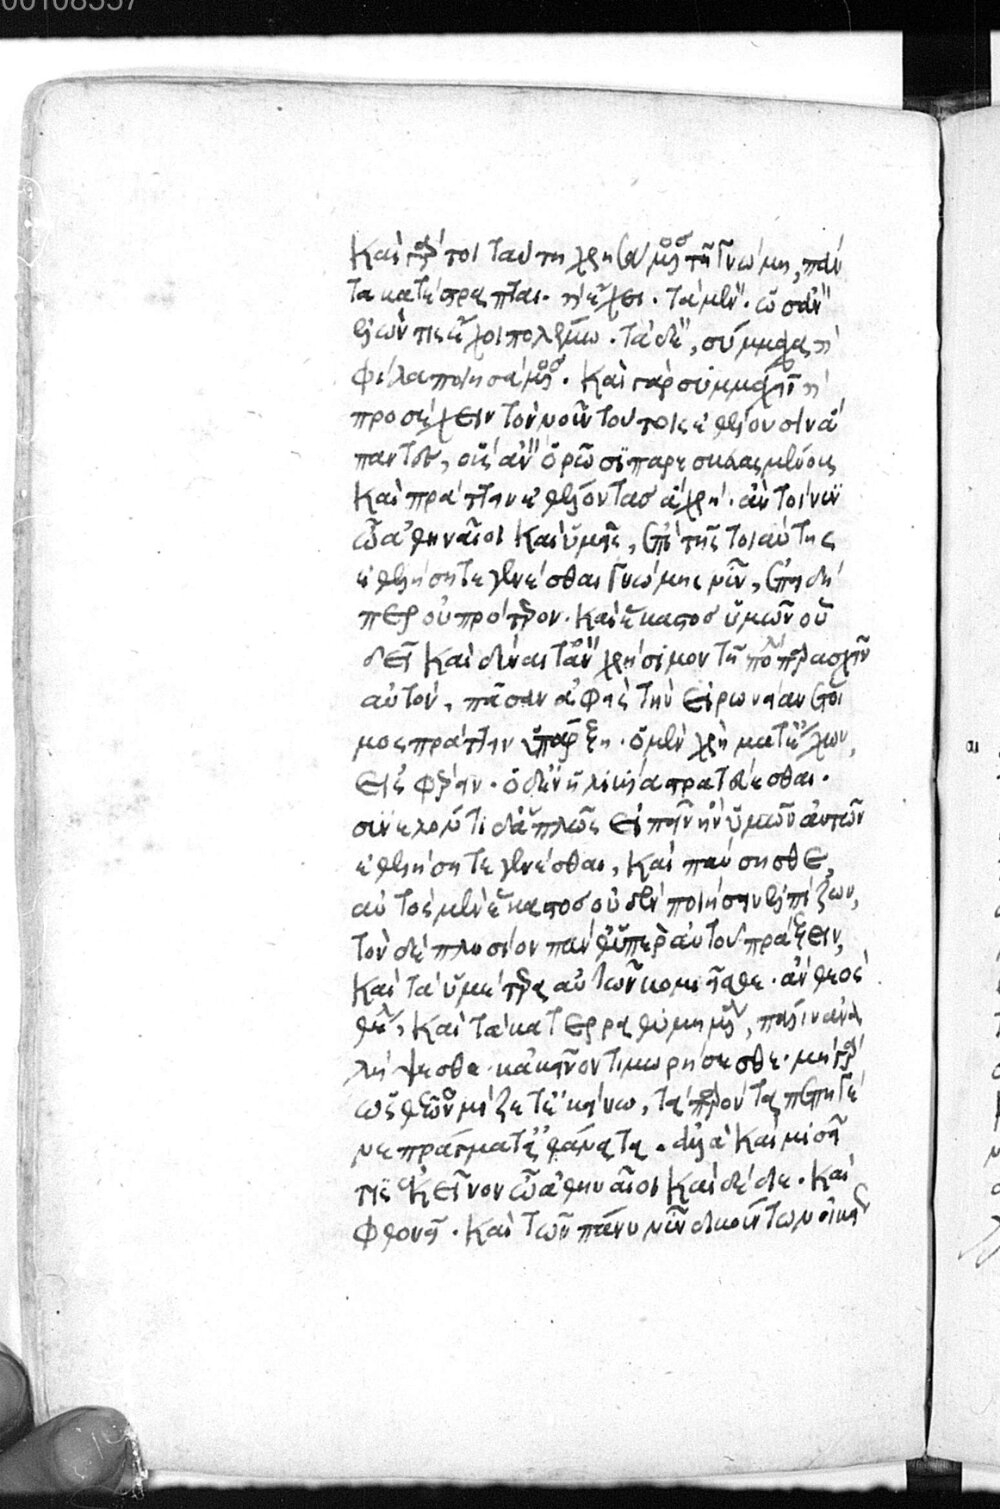 00108557
Καὶ γάρ τοι ταύτῃ χρησάμενος τῆ γνώμη, πάν
τα κατέστραπται. καὶ ἔχει. τὰ μὲν. ὡς ἂν
ἑλών τις ἔχοι πολέμω. τὰ δὲ, σύμμαχα καὶ
φίλα ποιησάμενος. Καὶ γὰρ συμμαχεῖν καὶ
προσέχειν τὸν νοῦν τούτοις ἐθέλουσιν ἅ
παντες, οὓς ἂν ὁρῶσι παρεσκευασμένους
Καὶ πράττειν ἐθέλοντας ἃ χρή. ἂν τοίνυν
ὦ ἀθηναῖοι Καὶ ὑμεῖς, ἐπὶ τῆς τοιαύτης
ἐθελήσητε γενέσθαι γνώμης νῦν, ἐπειδή
περ οὐ πρότερον. Καὶ ἕκαστος ὑμῶν οὗ
δεῖ Καὶ δύναιτ' ἂν χρήσιμον τῆ πόλει παρασχεῖν
αὑτὸν, πᾶσαν ἀφεὶς τὴν εἰρωνείαν ἕτοι
μος πράττειν ὑπάρξη. ὁ μὲν χρήματ' ἔχων,
εἰσφέρειν. ὁ δ' ἐν ἡλικία στρατεύεσθαι.
συνελόντι δ' ἁπλῶς εἰπεῖν ἢν ὑμῶν αὐτῶν
ἐθελήσητε γενέσθαι, Καὶ παύσησθε,
αὐτὸς μὲν ἕκαστος οὐδὲν ποιήσειν ἐλπίζων,
τὸν δὲ πλησίον πάνθ' ὑπὲρ αὐτοῦ πράξειν,
Καὶ τὰ ὑμέτερα αὐτῶν κομιεῖσθε. ἂν θεὸς
θέλη, Καὶ τὰ κατερραθυμημένα, πάλιν ἀνα
λήψεσθε. κἀκεῖνον τιμωρήσεσθε. μὴ γὰρ
ὡς θεῶ νομίζετ' ἐκείνω, τὰ παρόντα πεπηγέ
ναι πράγματα ἀθάνατα. ἀλλὰ Καὶ μισεῖ
τις ἐκεῖνον ὦ ἀθηναῖοι Καὶ δέδιε. Καὶ
φθονεῖ. Καὶ τῶν πάνυ νῦν δοκούντων οἰκεί